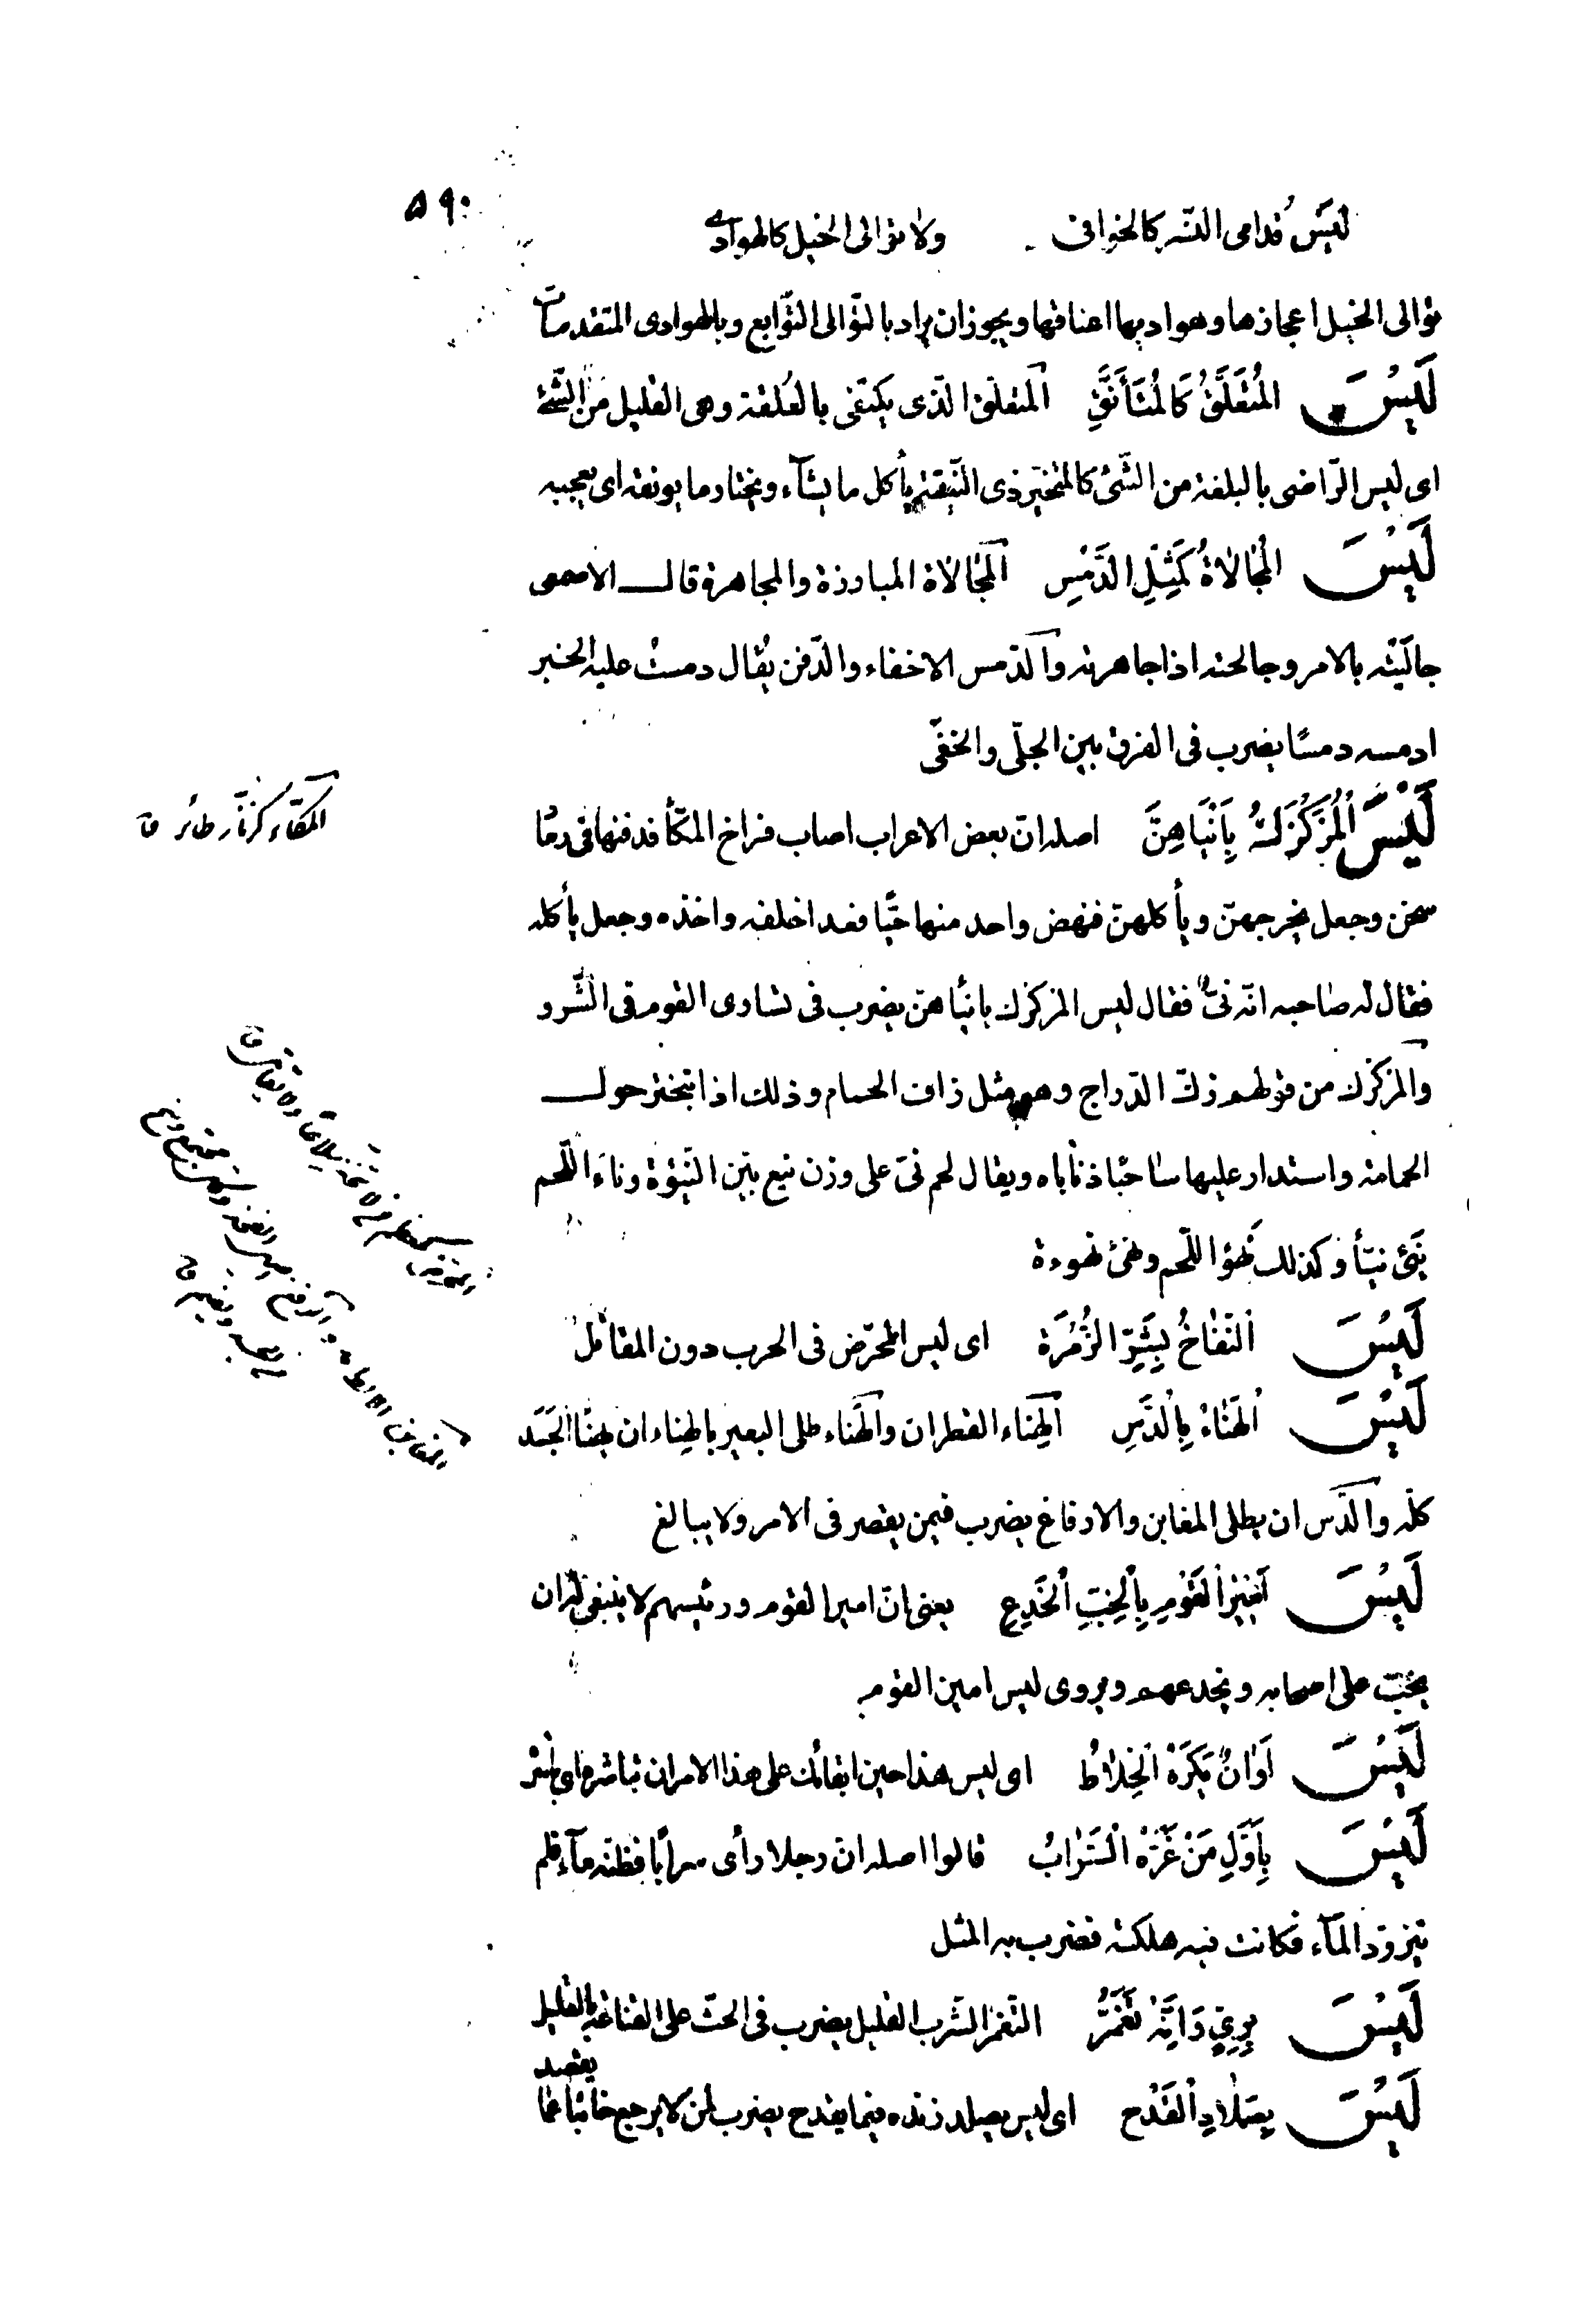 ٥٩٠
لَيسَ قُدامى النّسر كالخوافى ولا توالى الخيل كالهوادى
توالى الخيل اعجازها وهواديها اعناقها ويجوز ان يراد بالتّوالى التّوابع وبالهوادى المتقدمات
لَيْسَ المُتَعَلِّقُ كَالمُتَأَنِّقِ المتعلّق الّذى يكتفى بالعُلقة وهى القليل من الشّئ
اى ليس الرّاضى بالبلغة من الشّئ كالمتخيّر ذى النّيقة يأكل ما يشآء ويختار ما يونقه اى يعجبه
لَيْسَ المُجَالاةُ كَمِثْلِ الدَّمْسِ المجالاة المبارزة والمجاهرة قال الاصمعى
جاليته بالامر وجالحته اذا جاهرته والدّمس الاخفاء والدّفن يُقال دمست عليه الخبر
ادمسه دمسًا يضرب فى الفرق بين الجلّى والخفّى
لَيْسَ المُزَكْزِكُ بِأَنْيَاهِنَّ اصله انّ بعض الاعراب اصاب فراخ المكّأ فدفنها فى رماد
سخن وجعل يخرجهنّ ويأكلهنّ فنهض واحد منها حيًّا فعدا خلفه واخذه وجعل يأكله
فقال له صاحبه انّه نىٌّ فقال ليس المزكزك بانيأهنّ يضرب فى تساوى القوم فى الشّر و
والمزكزك من قولهم زكّ الدّراج وهو مثل زاف الحمام وذلك اذا تبختر حول
الحمامة واستدار عليها ساحبًا ذنأباه ويقال لحم نىّ على وزن نيع بيّن النّيؤة وناءَ اللّحم
يَنئ نيئًا وكذلك نَهُؤَ اللّحم ونهئ نهوءة
لَيْسَ النَّفّاخُ بِشَرِّ الزُّمْرَة اى ليس المحرّض فى الحرب دون المقاتل
لَيْسَ الهَنَاءُ بِالدَّسِّ الهِناء القطران والهَناء طلى البعير بالهِناء ان يهنأ الجسد
كلّه والدّس ان يطلى المغابن والارفاغ يضرب فيمن يقصر فى الامر ولا يبالغ
لَيْسَ أَمِيرُ القَوْمِ بِالخِبِّ الخَدِعِ يعنى انّ امير القوم ورئيسهم لا ينبغى له ان
يخبّ على اصحابه ويخدعهم ويروى ليس امين القوم
لَيْسَ أَوَانٌ يَكْرَهُ الخِلاطُ اى ليس هذا حين ابقائك على هذا الامر ان تباشره اى باشر
لَيْسَ بِأَوَّلِ مَنْ غَرَّهُ السَّرَابُ قالوا اصله ان رجلا رأى سرابًا فظنّه مآء فلم
يتزوّد المآء فكانت فيه هلكته فضرب به المثل
لَيْسَ بِرِيٍّ وَإِنَّهُ تَغَمُّرٌ التّغمّر الشّرب القليل يضرب فى الحثّ على القناعة بالقليل
لَيْسَ بِصَلّادِ القَدْح اى ليس يصلد زنده فيما يقدح يضرب لمن لا يرجع خائبًا عمّا
يقصد
المكّاء كزنّار طائر ق